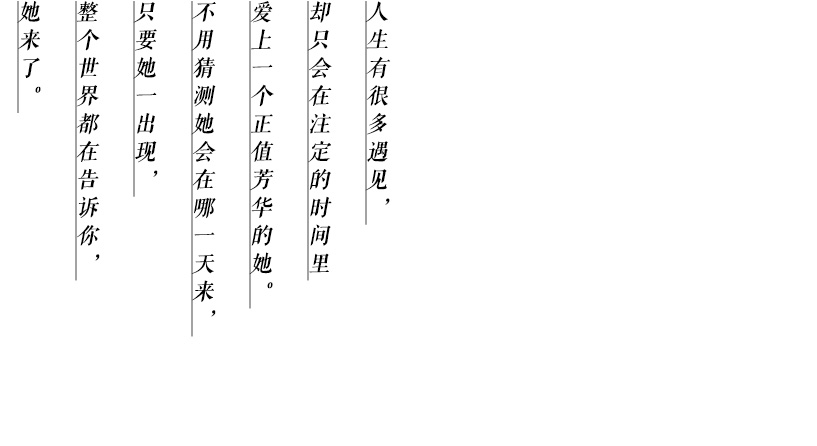 人生有很多遇见，
却只会在注定的时间里
爱上一个正值芳华的她。
不用猜测她会在哪一天来，
只要她一出现，
整个世界都在告诉你，
她来了。